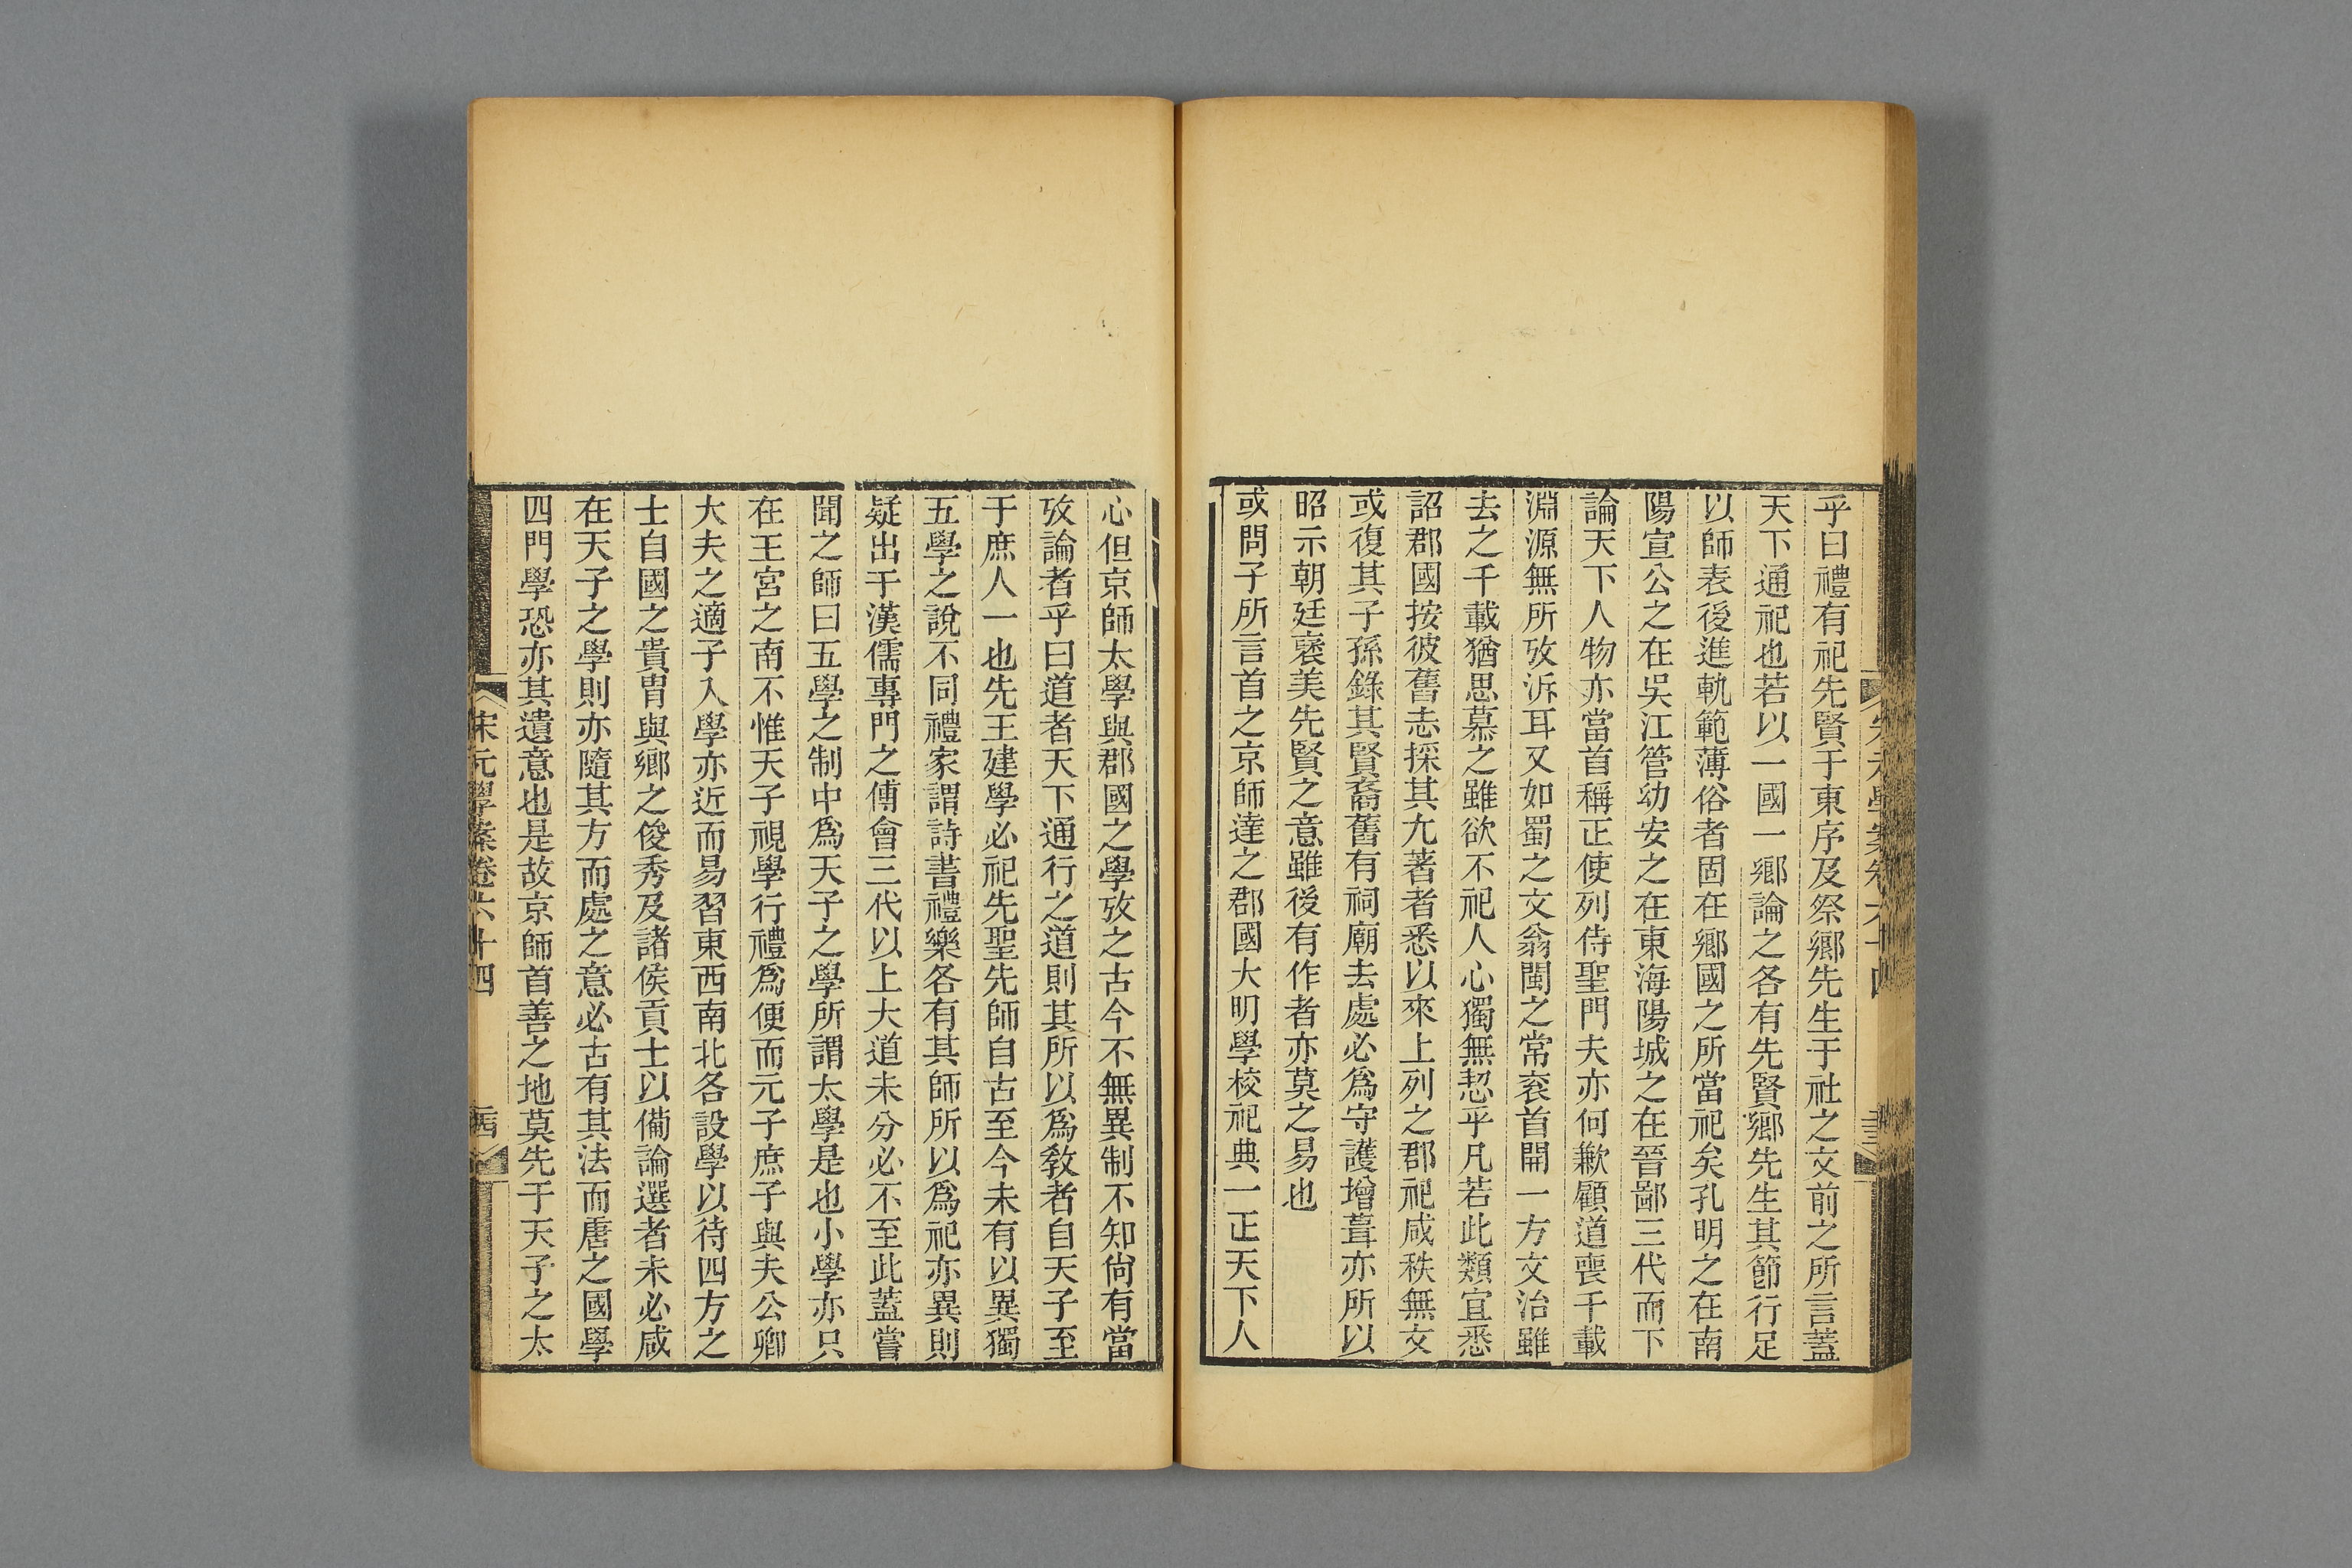 乎曰禮有祀先賢于東序及祭鄉先生于社之文前之所言蓋
天下通祀也若以一國一鄉論之各有先賢鄉先生其節行足
以師表後進軌範薄俗者固在鄉國之所當祀矣孔明之在南
陽宣公之在吳江管幼安之在東海陽城之在晉鄙三代而下
論天下人物亦當首稱正使列侍聖門夫亦何歉顧道喪千載
淵源無所攷泝耳又如蜀之文翁閩之常袞首開一方文治雖
去之千載猶思慕之雖欲不祀人心獨無恝乎凡若此類宜悉
詔郡國按彼舊志採其尤著者悉以來上列之郡祀咸秩無文
或復其子孫錄其賢裔舊有祠廟去處必爲守護增葺亦所以
昭示朝廷褒美先賢之意雖後有作者亦莫之易也
或問子所言首之京師達之郡國大明學校祀典一正天下人
心但京師太學與郡國之學攷之古今不無異制不知尙有當
攷論者乎曰道者天下通行之道則其所以爲敎者自天子至
于庶人一也先王建學必祀先聖先師自古至今未有以異獨
五學之說不同禮家謂詩書禮樂各有其師所以爲祀亦異則
疑出于漢儒專門之傅會三代以上大道未分必不至此蓋嘗
聞之師曰五學之制中爲天子之學所謂太學是也小學亦只
在王宮之南不惟天子視學行禮爲便而元子庶子與夫公卿
大夫之適子入學亦近而易習東西南北各設學以待四方之
士自國之貴胄與鄉之俊秀及諸侯貢士以備論選者未必咸
在天子之學則亦隨其方而處之意必古有其法而唐之國學
四門學恐亦其遺意也是故京師首善之地莫先于天子之太
宋元學案卷六十四